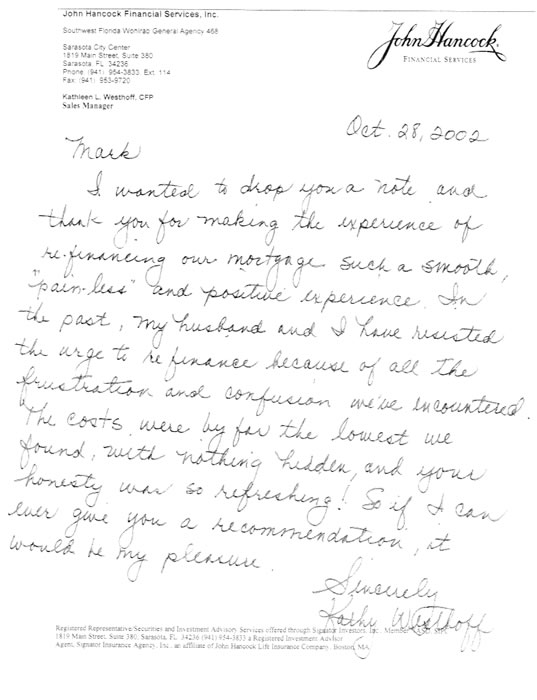 John Hancock Financial Services, Inc.
Southwest Florida Wohlrap General Agency 468
Sarasota City Center
1819 Main Street, Suite 380
Sarasota, FL 34236
Phone: (941) 954-3833 Ext: 114
Fax: (941) 953-9720
Kathleen L. Westhoff, CFP
Sales Manager
John Hancock
FINANCIAL SERVICES
Oct. 28, 2002
Mark
I wanted to drop you a note and
thank you for making the experience of
re-financing our mortgage such a smooth,
"pain-less" and positive experience. In
the past, my husband and I have resisted
the urge to refinance because of all the
frustration and confusion we've encountered.
The costs were by far the lowest we
found, with nothing hidden, and your
honesty was so refreshing! So if I can
ever give you a recommendation, it
would be my pleasure.
Sincerely
Kathy Westhoff
Registered Representative/Securities and Investment Advisory Services offered through Signator Investors, Inc., Member
1819 Main Street, Suite 380, Sarasota, FL 34236 (941) 954-3833 a Registered Investment Advisor
Agent, Signator Insurance Agency, Inc., an affiliate of John Hancock Life Insurance Company, Boston, MA